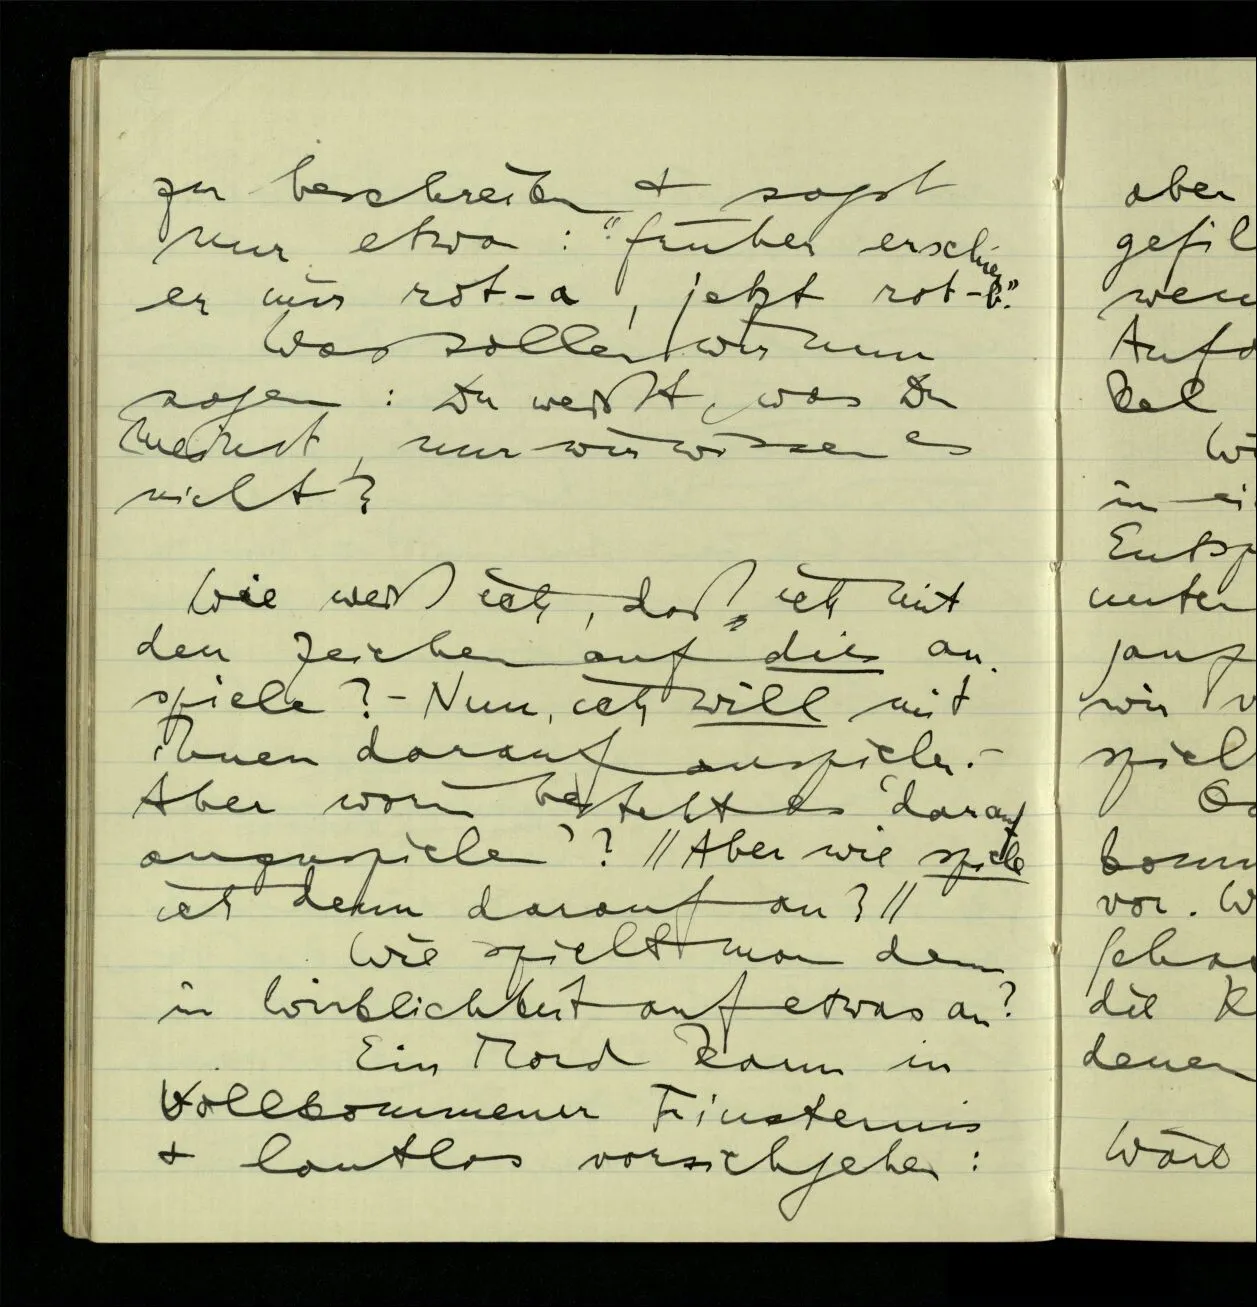 zu beschreiben & sagst
nur etwa: "früher erschien
er mir rot-a, jetzt rot-b".
Was sollen wir nun
sagen: Du weißt, was Du
meinst, nur wir wissen es
nicht?
Wie weiß ich, daß ich mit
den Zeichen auf die an-
spiele? – Nun, ich will mit
ihnen darauf anspielen. –
Aber worin besteht es 'darauf
anzuspielen'? // Aber wie spiele
ich denn darauf an? //
Wie spielt man denn
in Wirklichkeit auf etwas an?
Ein Mord kann in
vollkommener Finsternis
& lautlos vorsichgehen:
aber
gefil
wenn
Aufo
kel
Wi
in ei
Entsp
unter
auf
wir v
spiel
komm
vor. W
die K
denen
Wäre